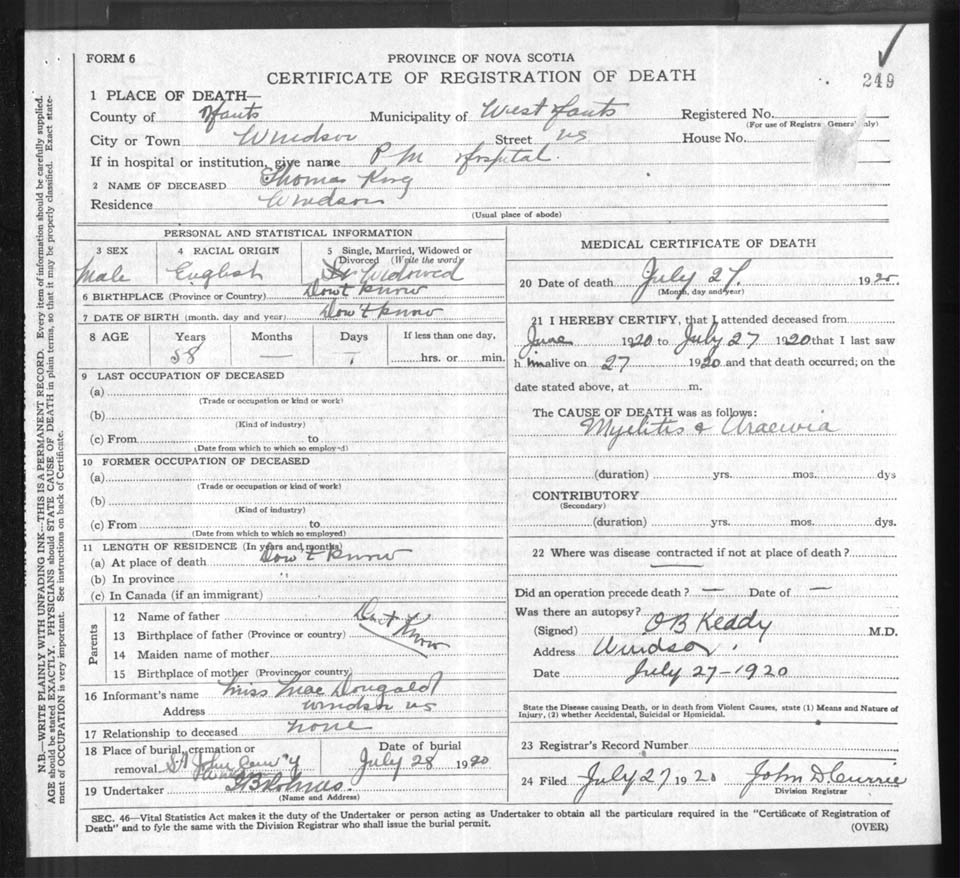 FORM 6
PROVINCE OF NOVA SCOTIA
CERTIFICATE OF REGISTRATION OF DEATH
249
1 PLACE OF DEATH—
County of Hants Municipality of West Hants Registered No.
(For use of Registrar General only)
City or Town Windsor Street NS House No.
If in hospital or institution, give name P M Hospital.
2 NAME OF DECEASED Thomas King
Residence Windsor
(Usual place of abode)
PERSONAL AND STATISTICAL INFORMATION
3 SEX 4 RACIAL ORIGIN 5 Single, Married, Widowed or Divorced (Write the word)
Male English Widowed
6 BIRTHPLACE (Province or Country) Don't know
7 DATE OF BIRTH (month, day and year) Don't know
8 AGE Years Months Days If less than one day,
58 — hrs. or min.
9 LAST OCCUPATION OF DECEASED
(a)
(Trade or occupation or kind or work)
(b)
(Kind of industry)
(c) From to
(Date from which to which so employed)
10 FORMER OCCUPATION OF DECEASED
(a)
(Trade or occupation or kind of work)
(b)
(Kind of industry)
(c) From to
(Date from which to which so employed)
11 LENGTH OF RESIDENCE (In years and months)
(a) At place of death Don't know
(b) In province "
(c) In Canada (if an immigrant)
Parents
12 Name of father Don't Know
13 Birthplace of father (Province or country)
14 Maiden name of mother
15 Birthplace of mother (Province or country)
16 Informant's name Miss Mac Dougald
Address Windsor NS
17 Relationship to deceased none
18 Place of burial, cremation or removal St John Date of burial July 28 1920
19 Undertaker
(Name and Address)
MEDICAL CERTIFICATE OF DEATH
20 Date of death July 27. 1920.
(Month, day and year)
21 I HEREBY CERTIFY, that I attended deceased from
June 1920 to July 27 1920 that I last saw
h im alive on 27 1920 and that death occurred; on the
date stated above, at m.
The CAUSE OF DEATH was as follows:
Myelitis & Uraemia
(duration) yrs. mos. dys
CONTRIBUTORY
(Secondary)
(duration) yrs. mos. dys.
22 Where was disease contracted if not at place of death?
Did an operation precede death? — Date of —
Was there an autopsy?
(Signed) O B Keddy M.D.
Address Windsor.
Date July 27-1920
State the Disease causing Death, or in death from Violent Causes, state (1) Means and Nature of
Injury, (2) whether Accidental, Suicidal or Homicidal.
23 Registrar's Record Number
24 Filed July 27 1920 John D. Currie
Division Registrar
SEC. 46—Vital Statistics Act makes it the duty of the Undertaker or person acting as Undertaker to obtain all the particulars required in the "Certificate of Registration of
Death" and to fyle the same with the Division Registrar who shall issue the burial permit.
(OVER)
N.B.—WRITE PLAINLY WITH UNFADING INK—THIS IS A PERMANENT RECORD. Every item of information should be carefully supplied.
AGE should be stated EXACTLY. PHYSICIANS should STATE CAUSE OF DEATH in plain terms, so that it may be properly classified. Exact state-
ment of OCCUPATION is very important. See instructions on back of Certificate.